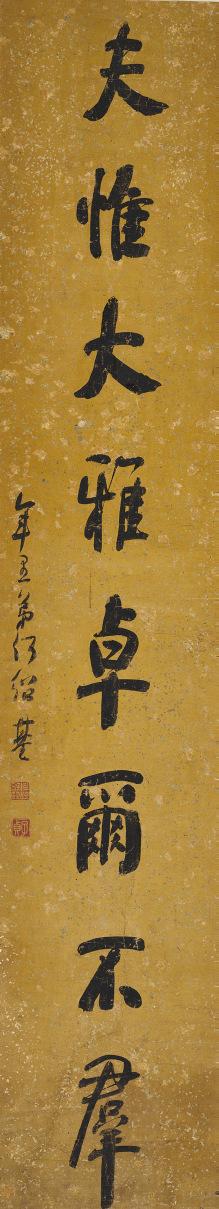 夫惟大雅卓爾不羣
年愚弟何紹基